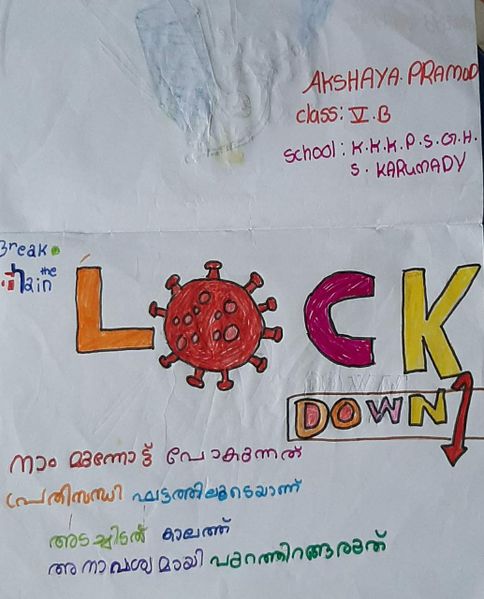 AKSHAYA. PRAMOD
class: V. B
school: K.K.K.P.S.G.H.
S. KARUMADY
Break
the
chain
LOCK
DOWN
നാം മുന്നോട്ട് പോകുന്നത്
പ്രതിസന്ധി ഘട്ടത്തിലൂടെയാണ്
അടച്ചിടൽ കാലത്ത്
അനാവശ്യമായി പുറത്തിറങ്ങരുത്